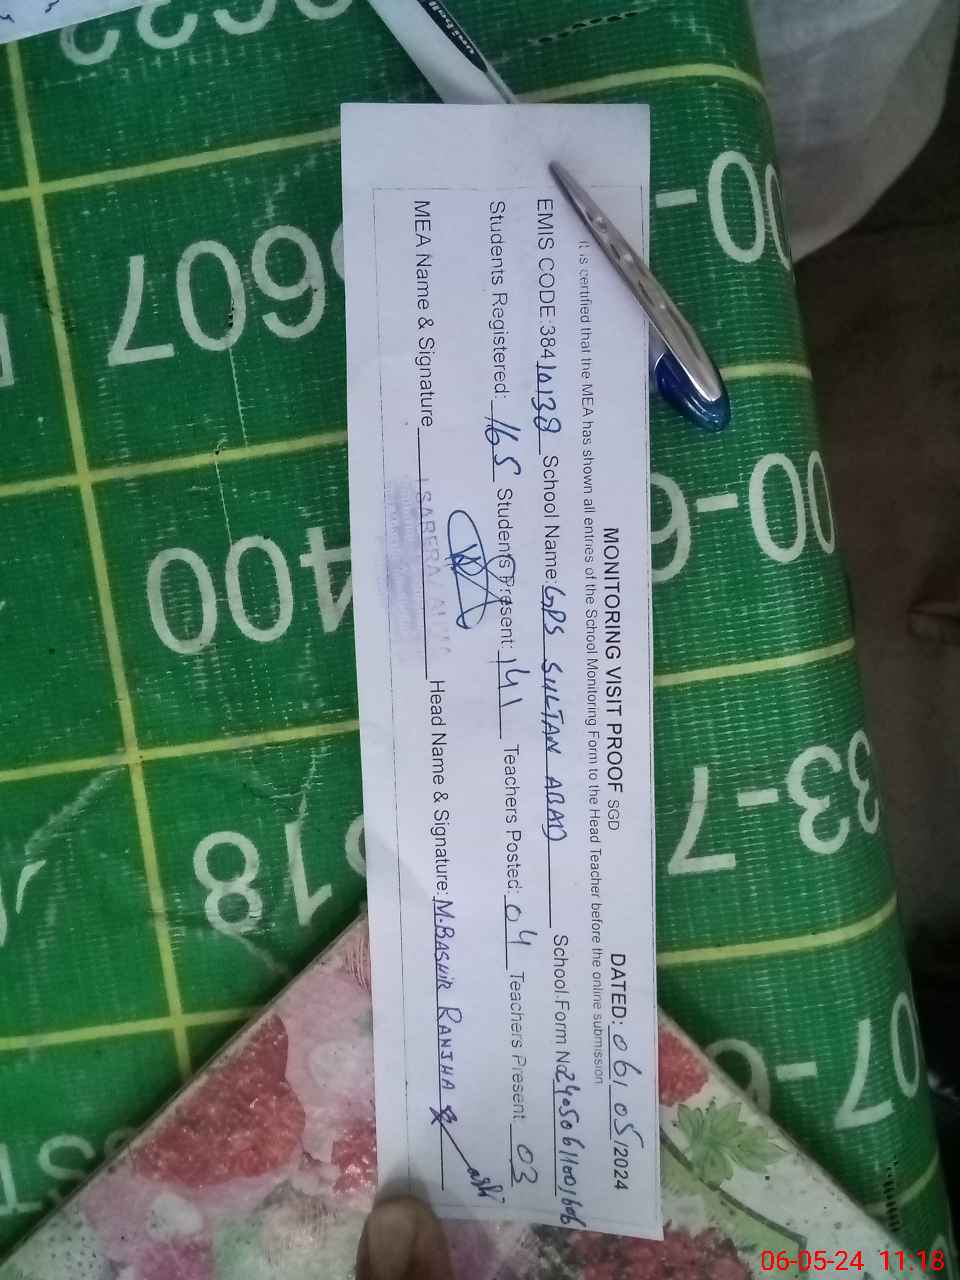 MONITORING VISIT PROOF SGD DATED: 06/05/2024
It is certified that the MEA has shown all entries of the School Monitoring Form to the Head Teacher before the online submission
EMIS CODE:38410138 School Name: GPS SULTAN ABAD School Form No
Students Registered: 165 Students Present: 141 Teachers Posted: 04 Teachers Present 03
MEA Name & Signature Head Name & Signature: M.BASHIR RANJHA
uniball
607
400
18
00-6
33-7
06-05-24 11.18